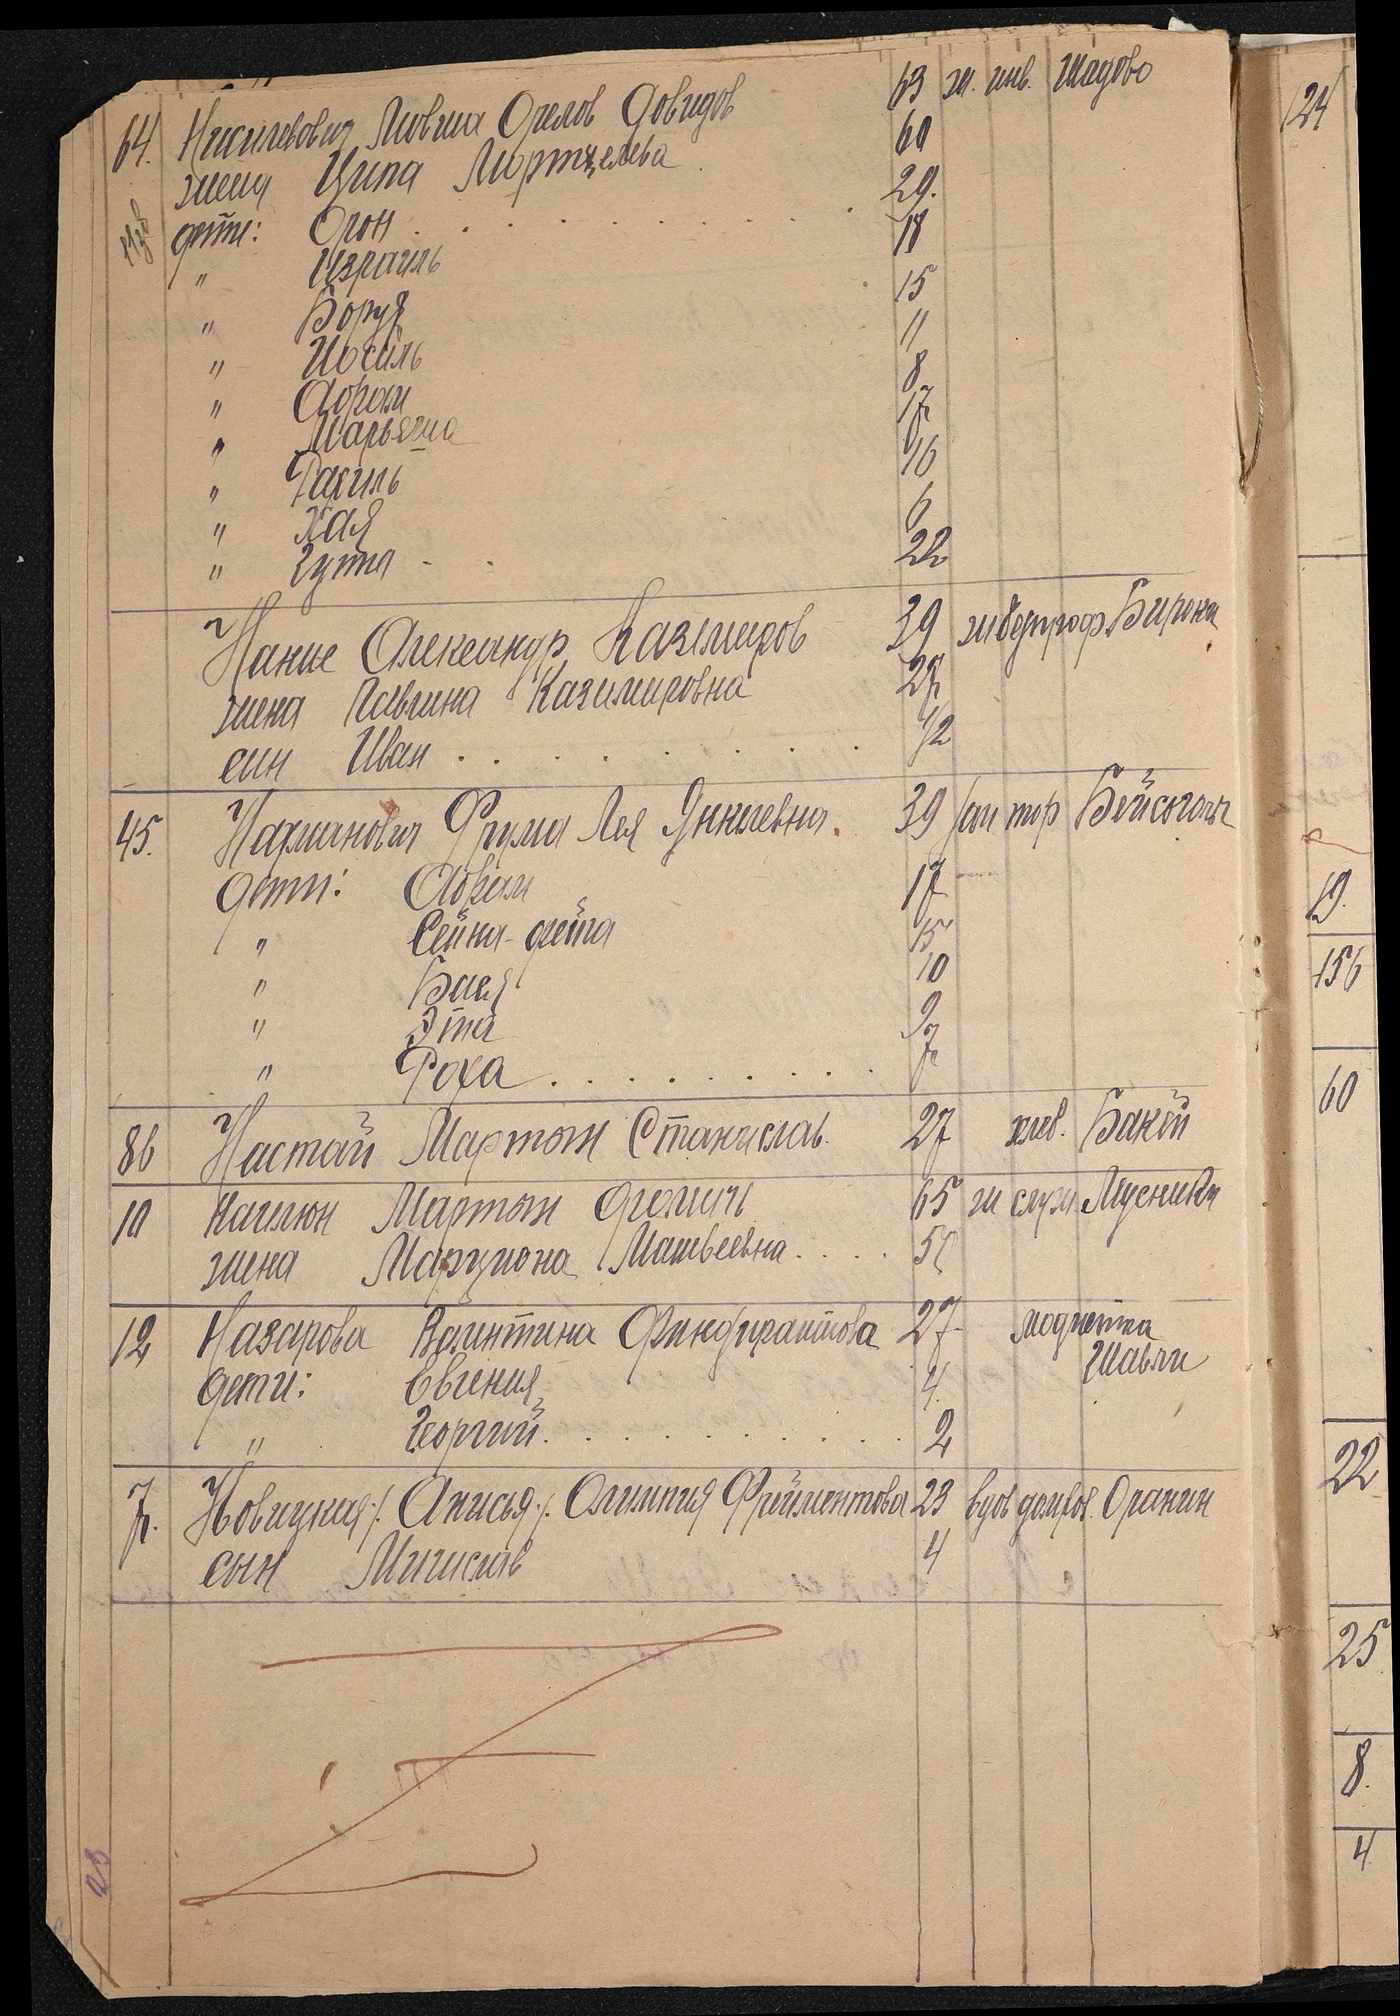 64. Нисилевович Мовша Орелов Довидов 63 ж. инв. Шадово
жена Ципа Мортхелева 60
дети: Орон 29.
" Израиль 18
" Борух 15
" Иосиль 11
" Абрам 8
" Марьяша 17
" Рахиль 16
" Хая 6
" Гута 22
Нание Александр Казимиров 39 Биржи
жена Павлина Казимировна 27
сын Иван 1/2
45. Нахманович Фрума Лея Янкелевна. 39 тор Бейсогола
дети: Абрам 17
" Сейна-фейга 15
" Бася 10
" Эта 9
" Роха 7
86 Настай Мартын Станислав. 27 хлеб. Бакой
10 Нагинюн Мартын Фомич 65 ж служ. Мусники
жена Марциона Матвеевна 56
12 Назарова Валинтина 27 модистка
Шавли
дети: Евгения 4.
" Георгий 2
7. Новицкая /. Анисья ./. Олимпия Фрейментова 23 вдов домхоз. Оранин
сын Мишслав 4
23
124
19.
156
60
22
25
8.
4